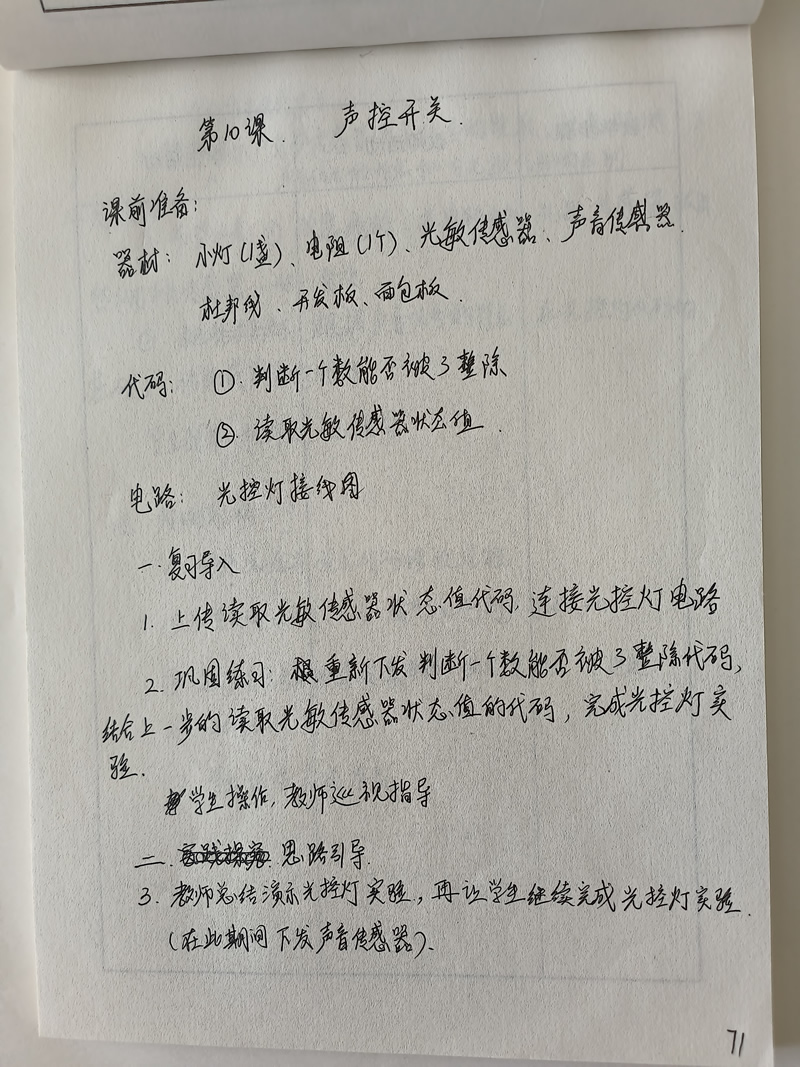 第10课. 声控开关.
课前准备:
器材: 小灯(1盏)、电阻(1个)、光敏传感器、声音传感器.
杜邦线、开发板、面包板.
代码: ①. 判断一个数能否被3整除
②. 读取光敏传感器状态值.
电路: 光控灯接线图
一.复习导入
1. 上传读取光敏传感器状态值代码, 连接光控灯电路
2. 巩固练习: 重新下发判断一个数能否被3整除代码,
结合上一步的读取光敏传感器状态值的代码, 完成光控灯实
验.
学生操作, 教师巡视指导
二. 思路引导.
3. 教师总结演示光控灯实验, 再让学生继续完成光控灯实验.
(在此期间下发声音传感器).
71